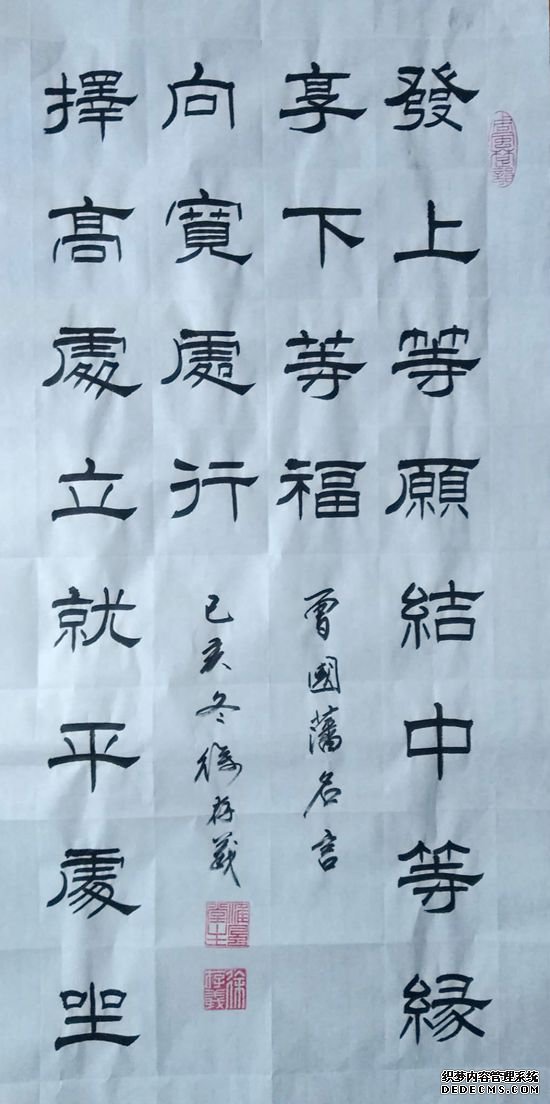 發上等願結中等緣
享下等福
擇高處立就平處坐
向寬處行
曾國藩名言
己亥冬徐存義
徐存義
织梦内容管理系统
DEDECMS.COM